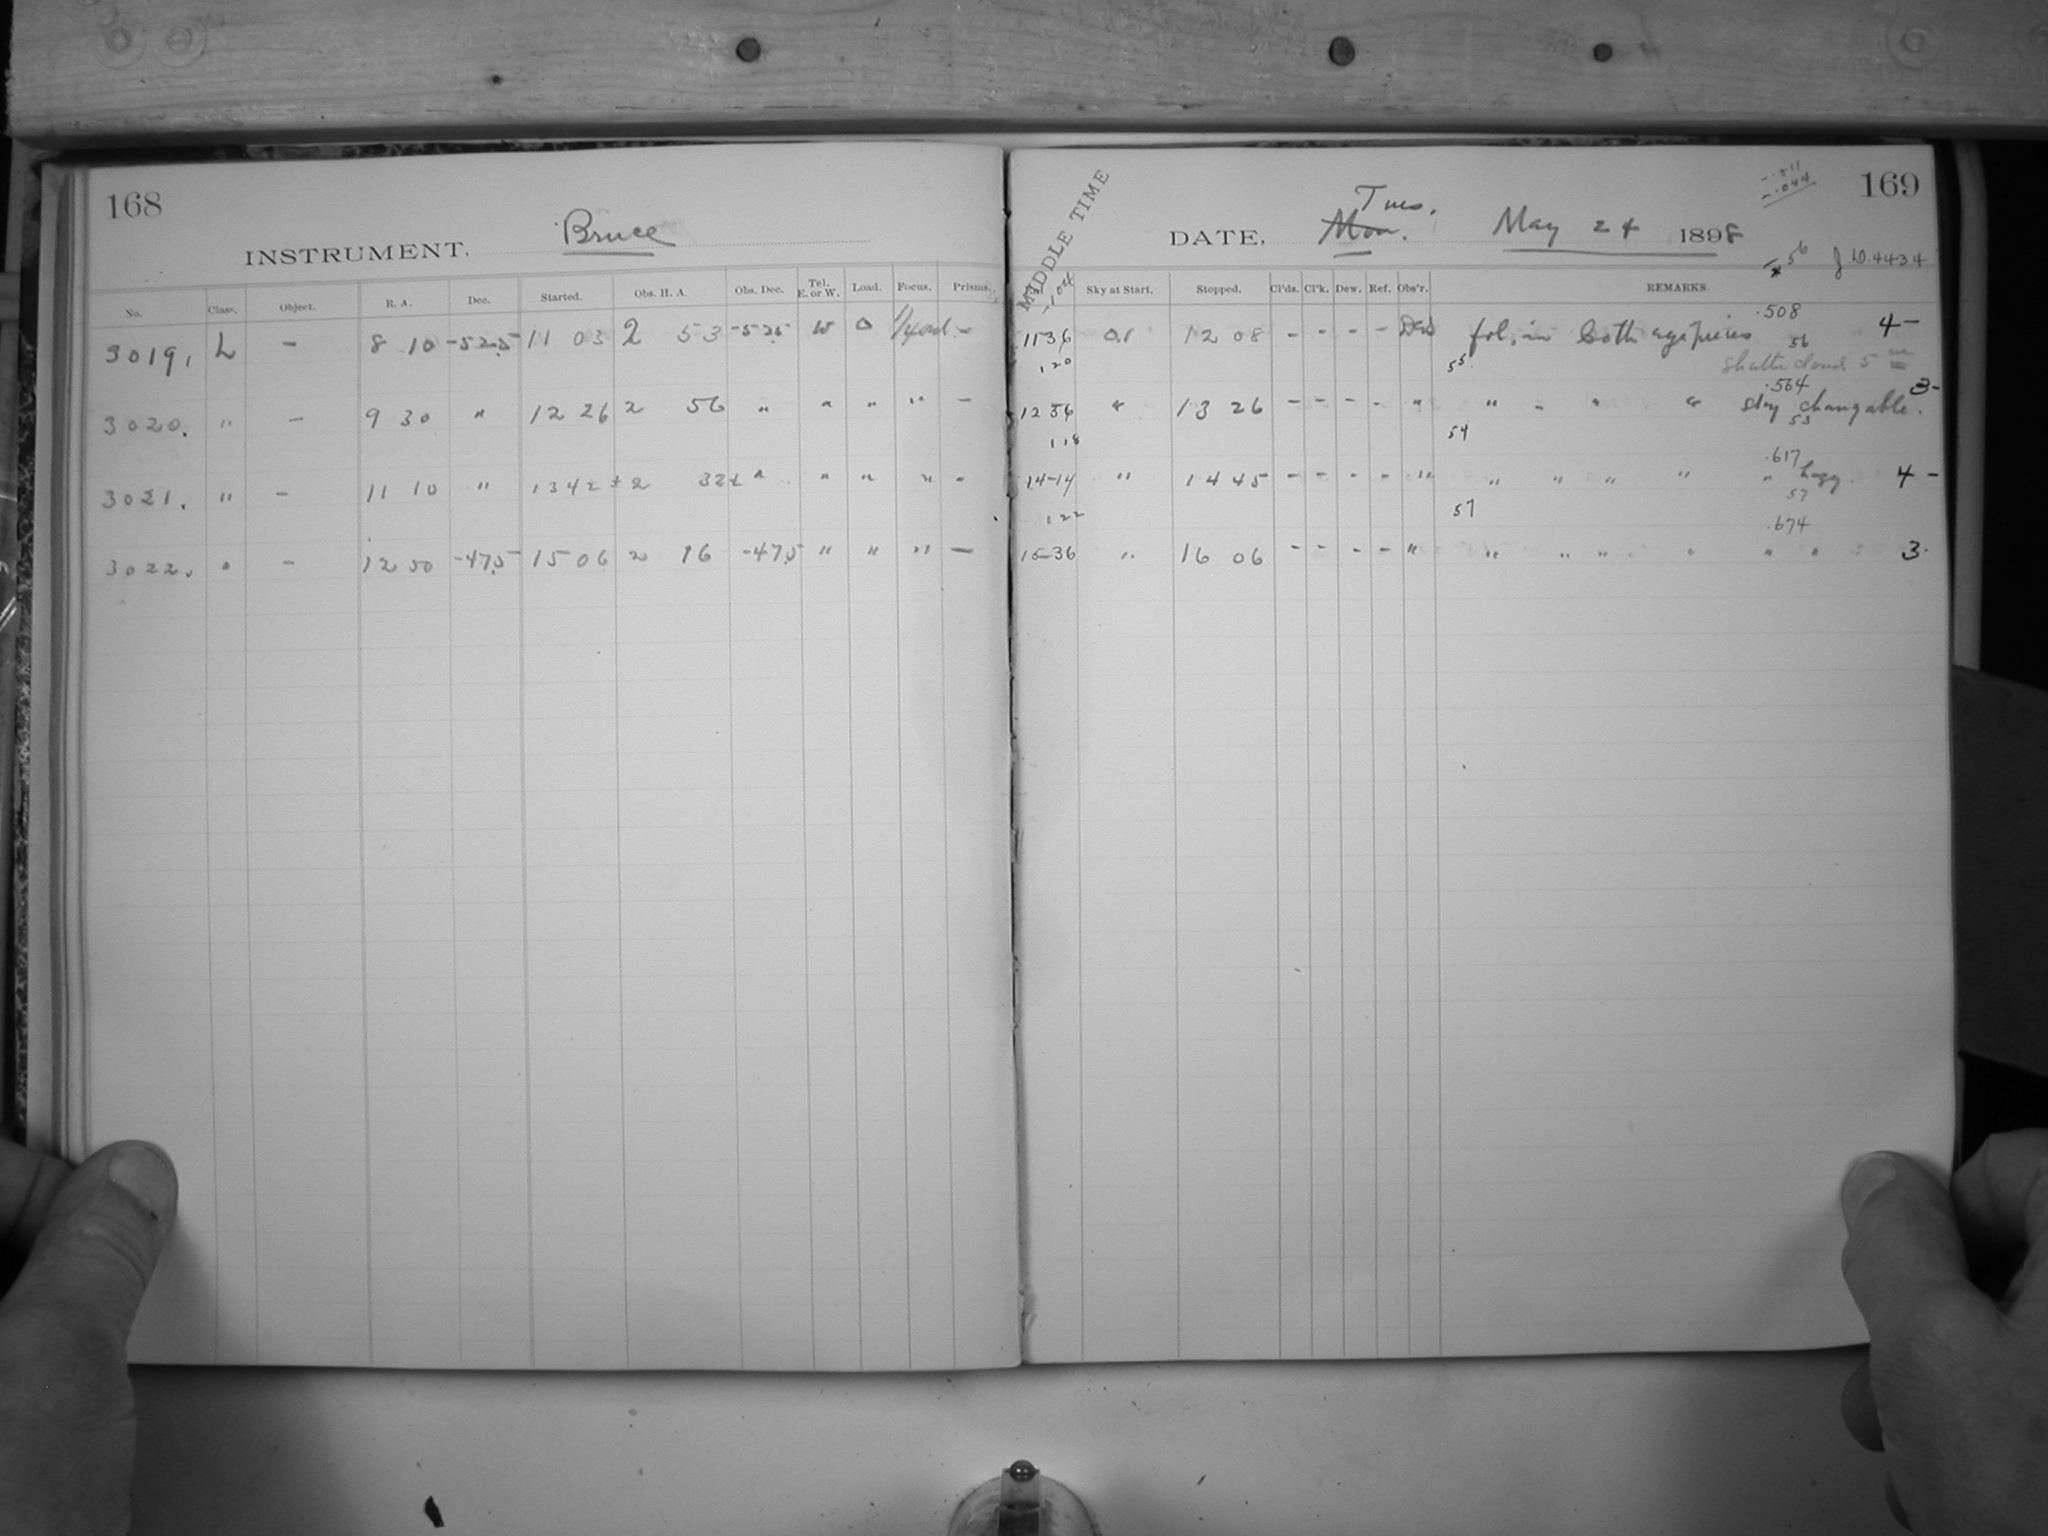 168
INSTRUMENT, Bruce
No. Class. Object. R. A. Dec. Started. Obs. H. A. Obs. Dec. Tel. E. or W. Load. Focus. Prisms.
3019. L - 8 10 -52.5 11 03 2 53 -52.5 W 0
3020. " - 9 30 " 12 26 2 56 " " " " -
3021. " - 11 10 " 13 42 ± 2 32± " " " " -
3022. " - 12 50 -47.5 15 06 2 16 -47.5 " " " -
MIDDLE TIME
-.511
-.044
169
Tues.
DATE, Mon. May 24 1898
56 J.D. 4434
Sky at Start. Stopped. Cl'ds. Cl'k. Dew. Ref. Obs'r. REMARKS.
.508
11 36 0.1 12 08 - - - - fol. in both eyepieces 4-
120 55 56
5 m
.564
12 56 " 13 26 - - - - " " " " " sky changable. 3-
118 54 53
.617
14-14 " 14 45 - - - - " " " " " " hazy. 4-
122 57 57
.674
15-36 " 16 06 - - - - " " " " " " " 3